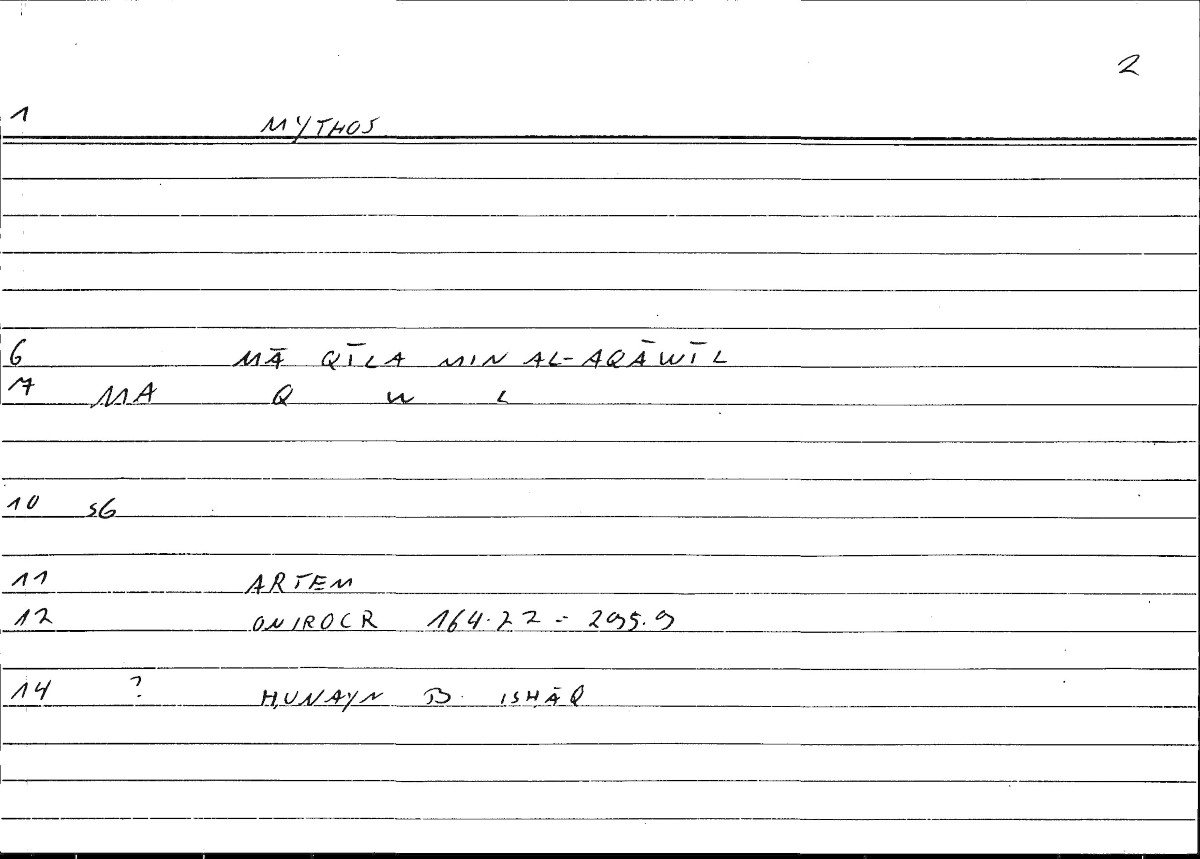 2
1 MYTHOS
6 MĀ QĪLA MIN AL-AQĀWĪL
7 MA Q W L
10 sG
11 ARTEM
12 ONIROCR 164.22 - 295.9
14 ? ḤUNAYN B. ISḤĀQ